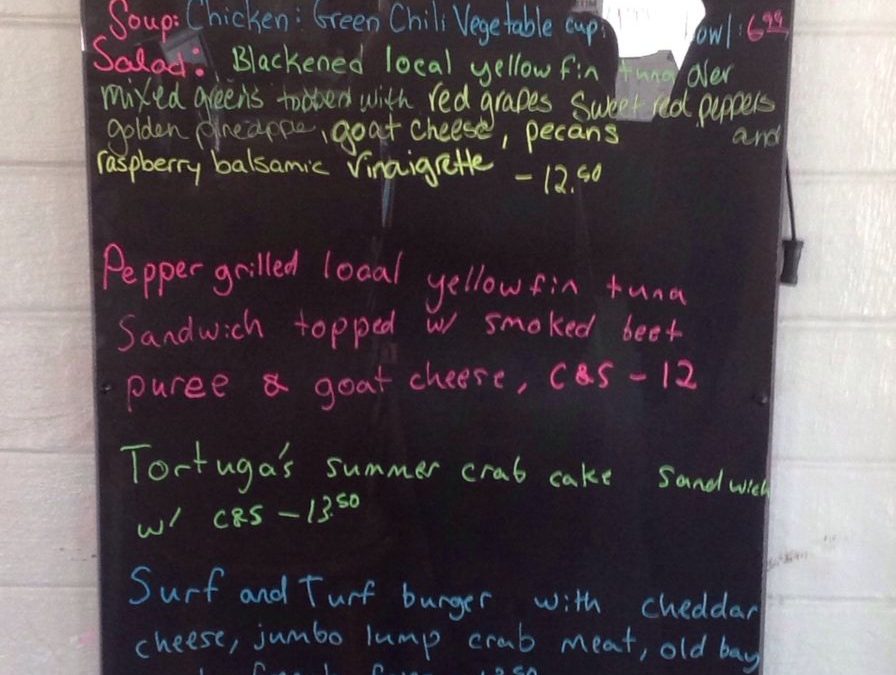 Soup: Chicken: Green Chili Vegetable cup: bowl: 6.99
Salad: Blackened local yellow fin tuna over
mixed greens topped with red grapes sweet red peppers
golden pineapple, goat cheese, pecans and
raspberry balsamic vinaigrette - 12.50
Pepper grilled local yellowfin tuna
Sandwich topped w/ smoked beet
puree & goat cheese, C&S - 12
Tortuga's summer crab cake sandwich
w/ C&S - 13.50
Surf and Turf burger with cheddar
cheese, jumbo lump crab meat, old bay